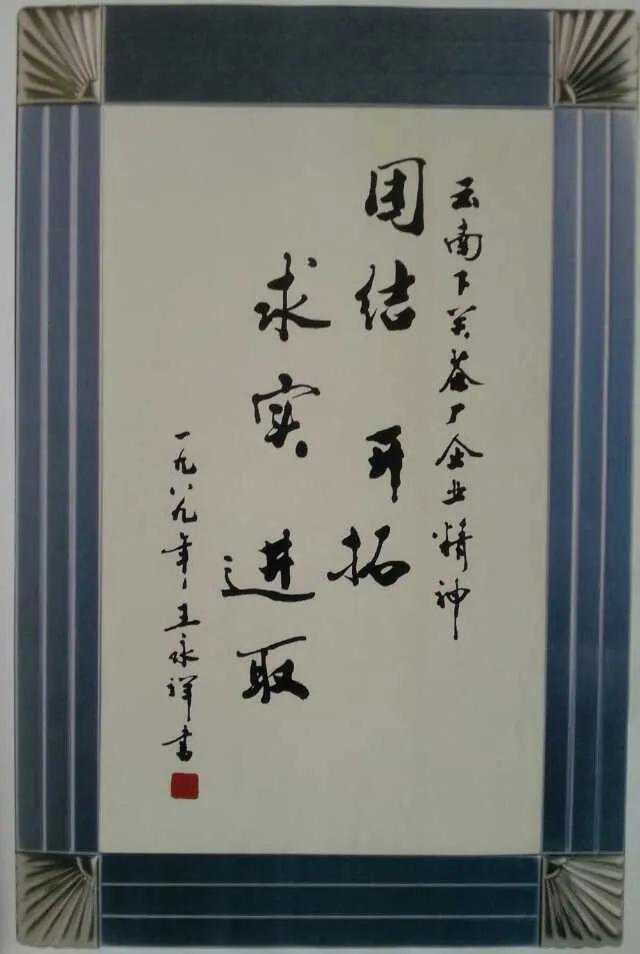 云南下关茶厂企业精神
团结 开拓
求实 进取
一九八九年王永祥书